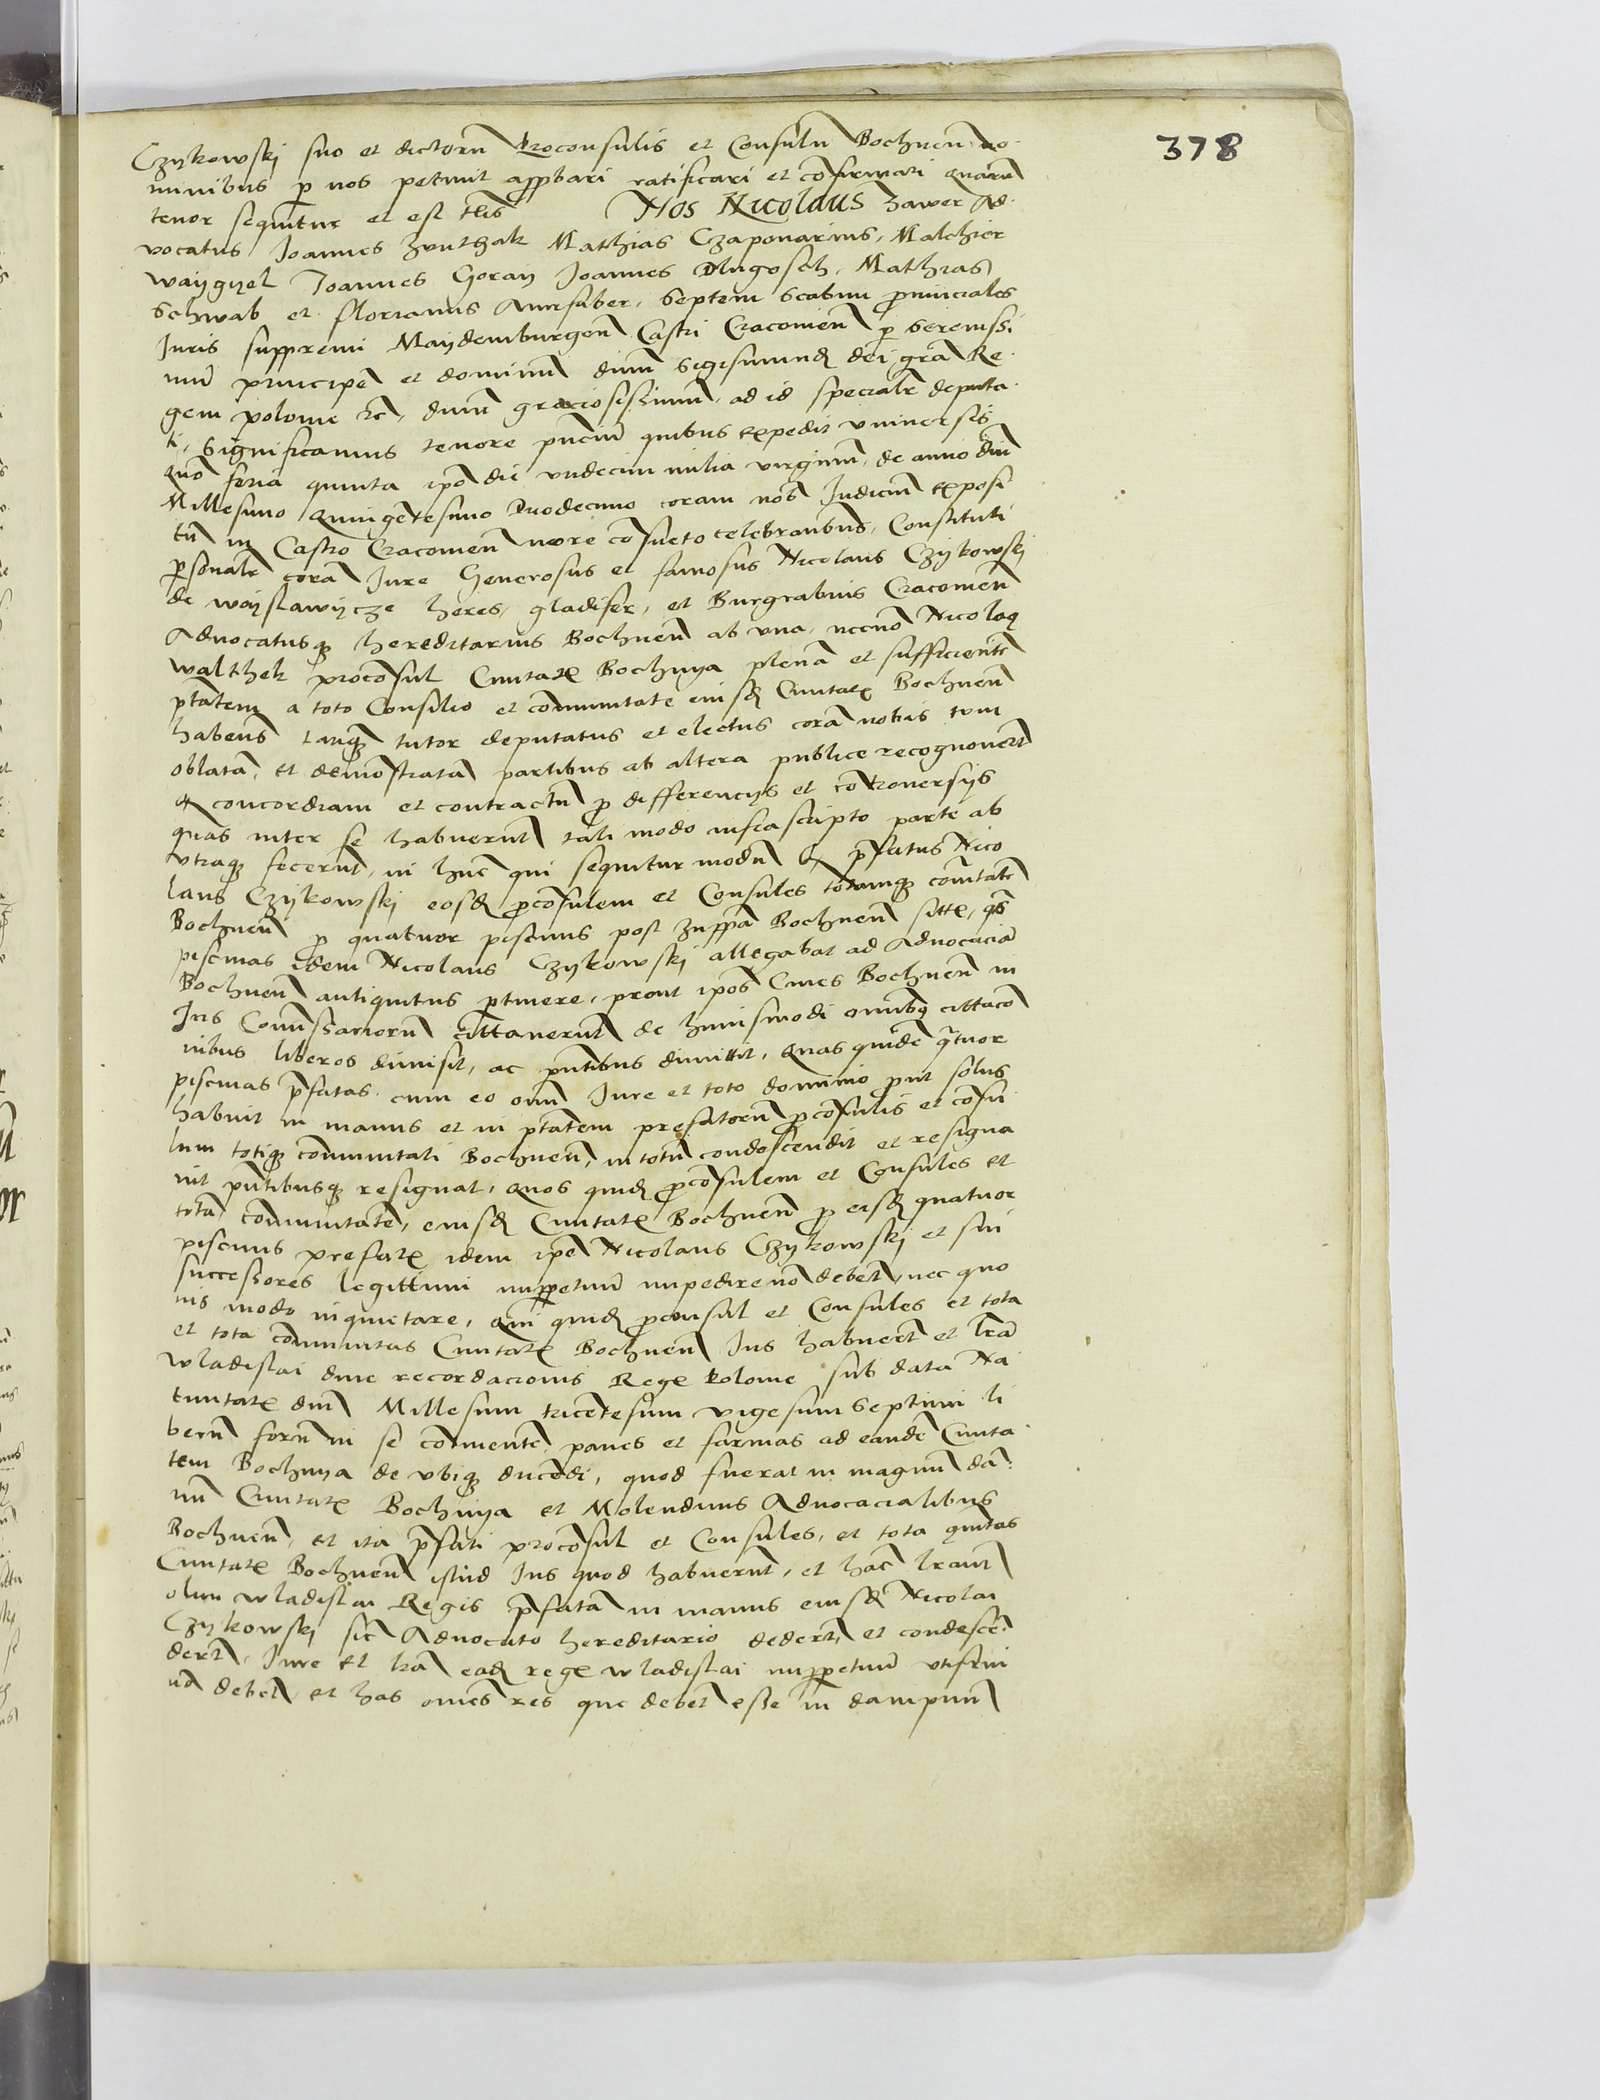 378
Czykowskj suo et dictorū Proconsulis et Consulū Bochnen̄ no
minibus p nos petiuit approbari ratificari et cōfirmari quarū
tenor sequitur et est tlis Nos Nicolaus zawer Ad
uocatus Joannes Mathias Czaponarius, Malchier
Joannes Goray Joannes Dlugosch, Mathias
Schwab et Florianus Aurifaber, Septem Scabini prouinciales
Juris suppremi Maydemburgen̄ Castri Cracouien̄ p Serenissi
mū principē et dominū dnm̄ Sigismundū dei grā Re
gem polonie etc, dnm̄ graciosissimum, ad id specialr̄ deputa
ti, Significamus tenore pn̄ciū quibus expedit vniuersis
quō feria quinta ipō die vndecim milia virginū, de anno dnī
Millesimo Quingētesimo Duodecimo coram nob̄ Judiciū exposi
tū in Castro Cracouien̄ more cōsueto celebrantibus, Constituti
psonalr̄ corā Jure Generosus et famosus Nicolaus Czykowskj
de woyslawycze heres, gladifer, et Burgrabius Cracouien̄
Aduocatusq hereditarius Bochnen̄ ab vna, necnō Nicolaq
walthek procōsul Ciuitatis Bochnya plenā et sufficientē
ptātem a toto Consilio et cōmunitate eiusd Ciuitatis Bochnen̄
habens tanq tutor deputatus et electus corā nobis tum
oblatā, et demōstratā partibus ab altera publice recognouerūt
q concordiam et contractū p differencijs et cōtrouersijs
quas inter se habuerunt tali modo infrascripto parte ab
vtraq fecerūt, in hūc qui sequitur modū q pfatus Nico
laus Czykowskj eosd pcōsulem et Consules totamq cōitatē
Bochnen̄ p quatuor piscinis post zuppā Bochnen̄ sitis, qs
piscinas idem Nicolaus Czykowskj allegabat ad Aduocaciā
Bochnen̄ antiquitus ptinere, prout ipōs Ciues Bochnen̄ in
Jus Comissariorū cittauerūt de huiusmodi omībq cittacō
nibus liberos dimisit, ac pn̄tibus dimittit, Quas quidē qtuor
piscinas pfatas cum eo omī Jure et toto dominio put solus
habuit in manus et in ptātem prefatorū pcōsulis et cōsu
lum totiq cōmunitati Bochnen̄, in totū condoscendit et resigna
uit pn̄tibusq resignat, Quos quid pcōsulem et Consules et
totā cōmunitatē, eiusd Ciuitatis Bochnen̄ p eisd quatuor
piscinis prefatis idem ipē Nicolaus Czykowskj et sui
successores legittimi impetuū impedire nō debēt, nec quo
uis modo inquietare, Qui quid pconsul et Consules et tota
et tota cōmunitas Ciuitatis Bochnen̄ Jus habuerūt et lrā
wladislai diue recordacionis Regis Polonie sub data Na
tiuitatis dnī Millesimi tricētesimi vigesimi Septimi li
berū forū in se cōtinentē panes et farinas ad eandē Ciuita
tem Bochnya de vbiq ducēdi, quod fuerat in magnū dā
nū Ciuitatis Bochnya et Molendinis Aduocacialibus
Bochnen̄, et ita pfati procōsul et Consules, et tota
Ciuitatis Bochnen̄ istud Jus quod habuerūt, et hāc
olim wladislai Regis pfatā in manus eiusd Nicolai
Czykowskj sic Aduocato hereditario dederūt, et condescē
derūt, Jure et lrā ead regis wladislai imppetuū vti frui
nō debēt, et has omēs res que debēt esse in dampnū